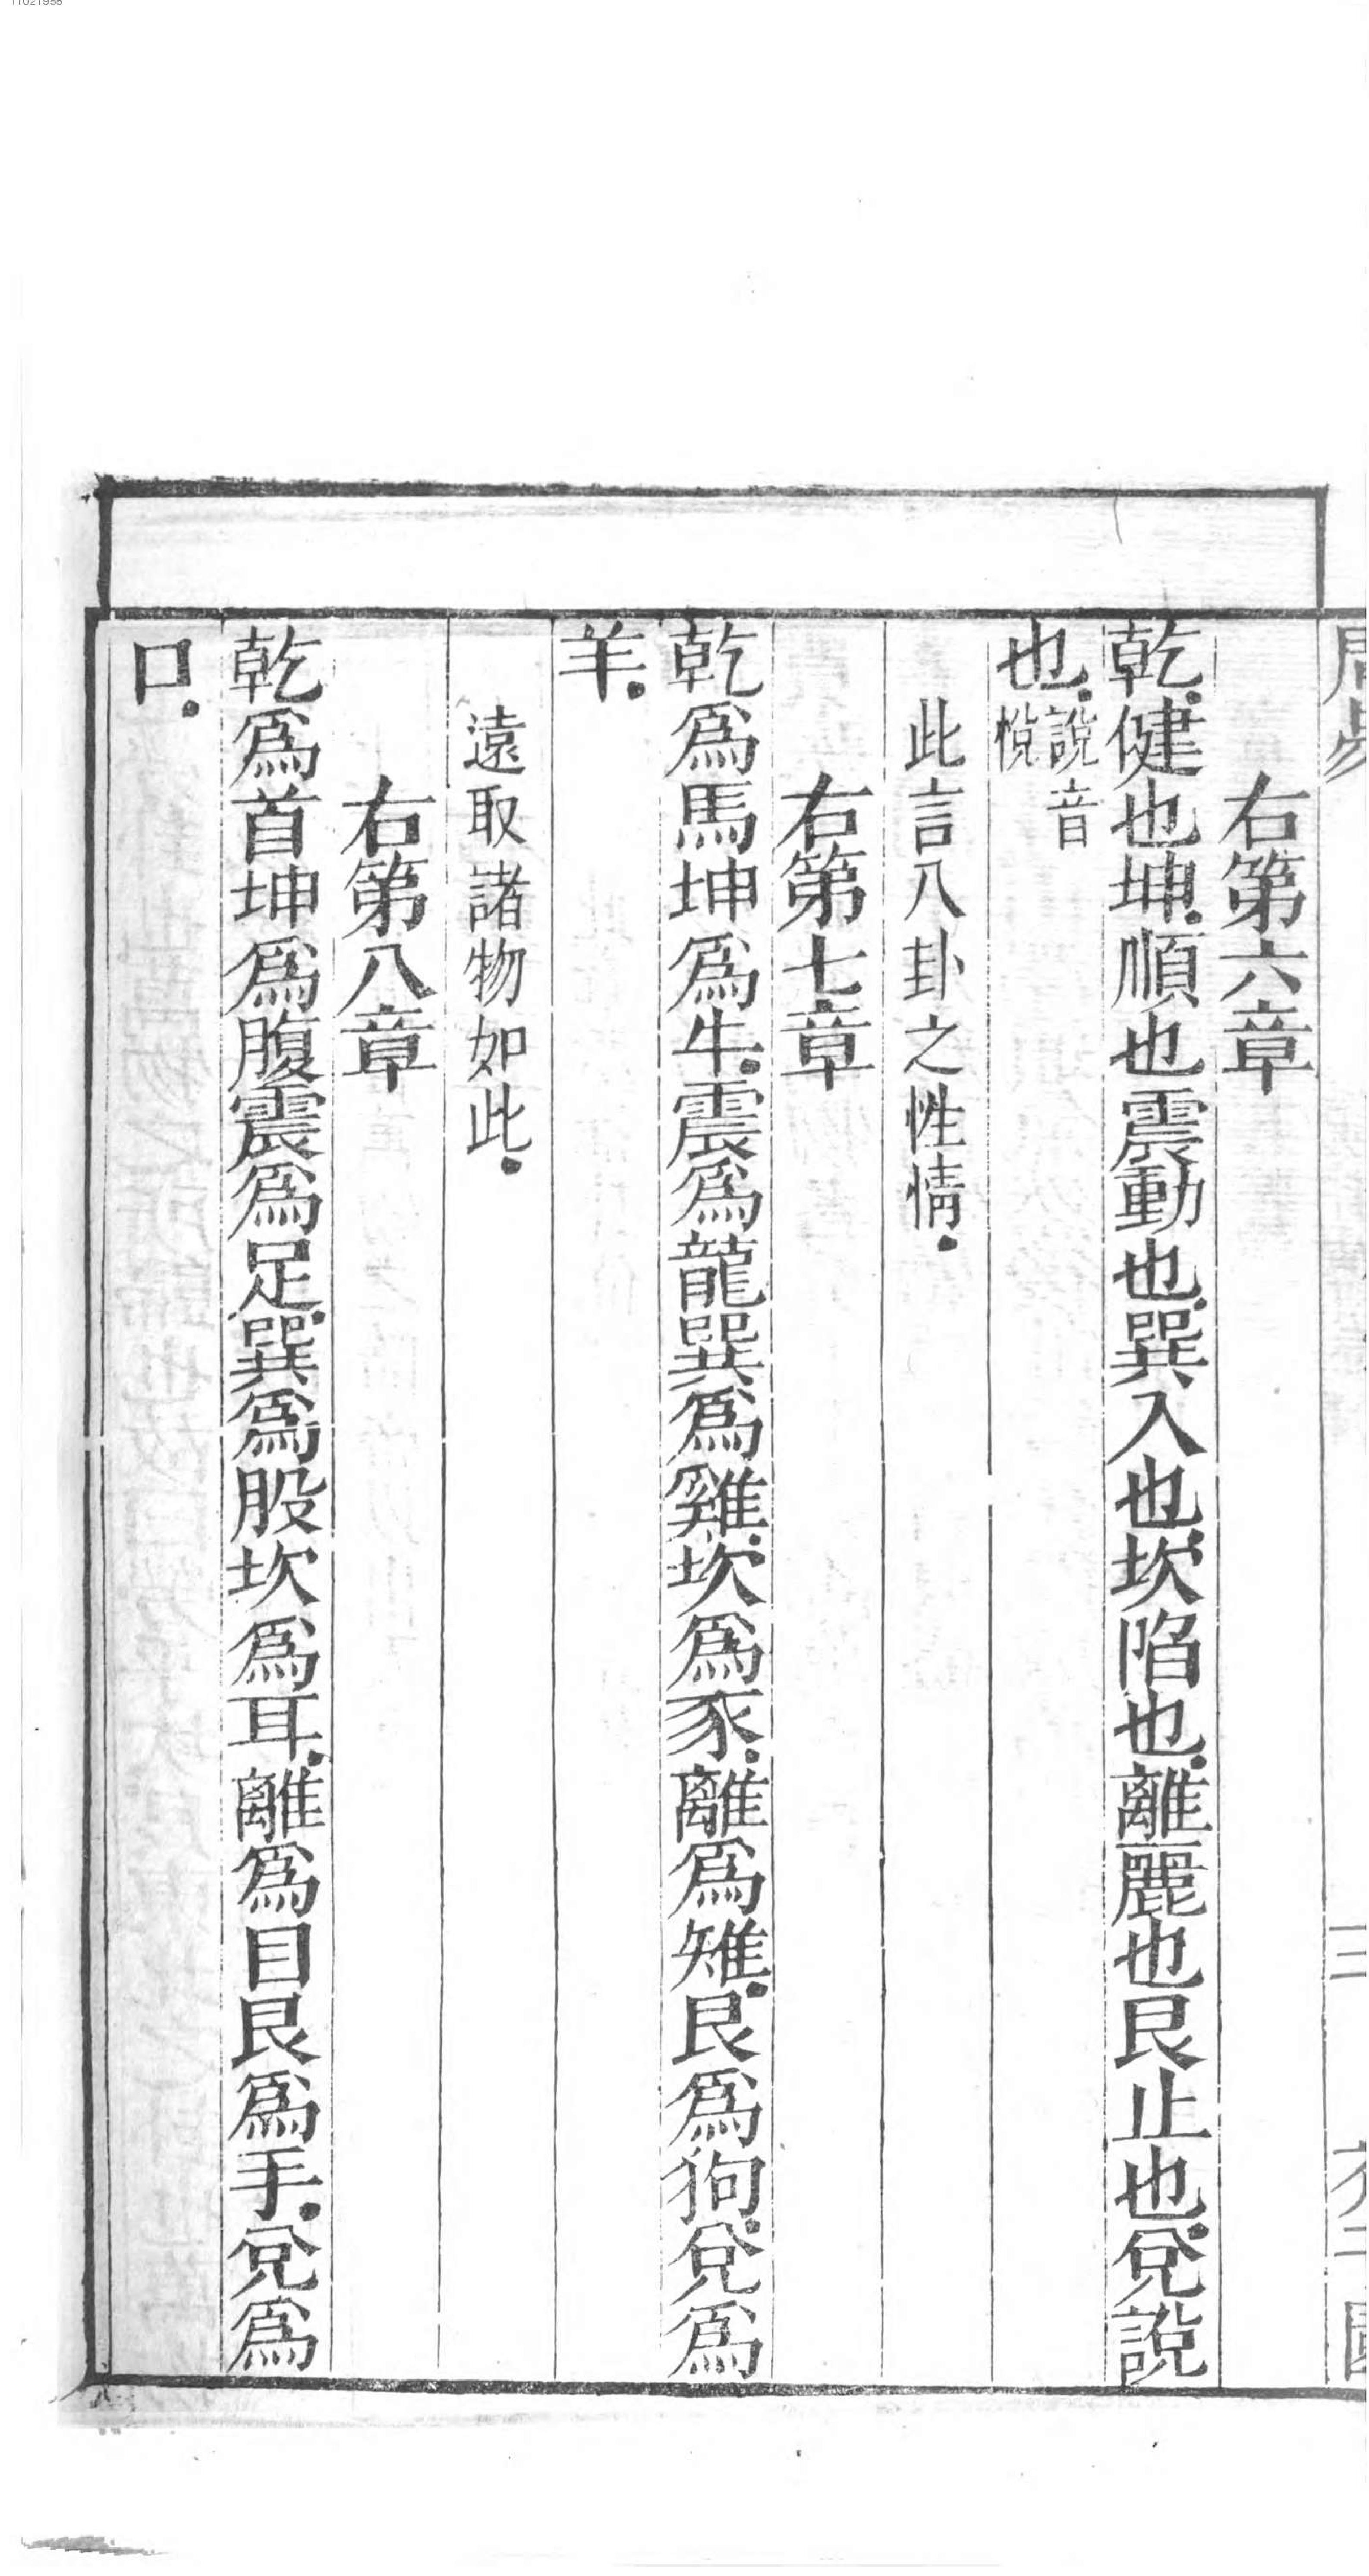 右第六章
乾.健也坤.順也震動也.巽入也.坎陷也.離麗也艮止也.兌說
也.說音悅
此言八卦之性情.
右第七章
乾爲馬坤爲牛.震爲龍巽爲雞.坎爲豕.離爲雉.艮爲狗.兌爲
羊.
遠取諸物如此.
右第八章
乾爲首坤爲腹震爲足.巽爲股坎爲耳.離爲目艮爲手.兌爲
口.